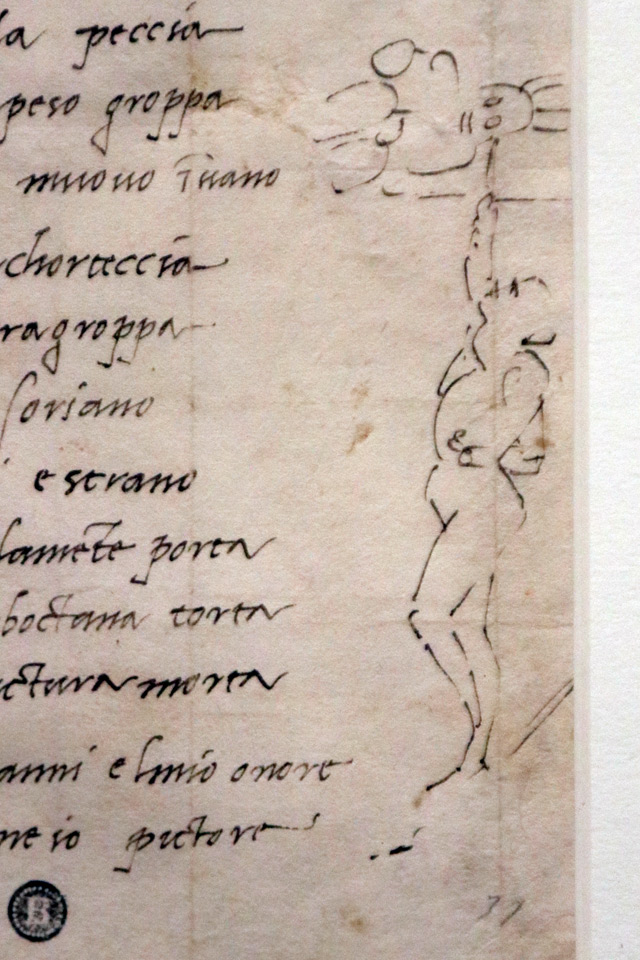 la peccia
peso groppa
muovo ĩvano
chorteccia
ragroppa
soriano
e strano
lamẽte porta
boctana torta
ctura morta
anni e lmio onore
ne io pictore
37